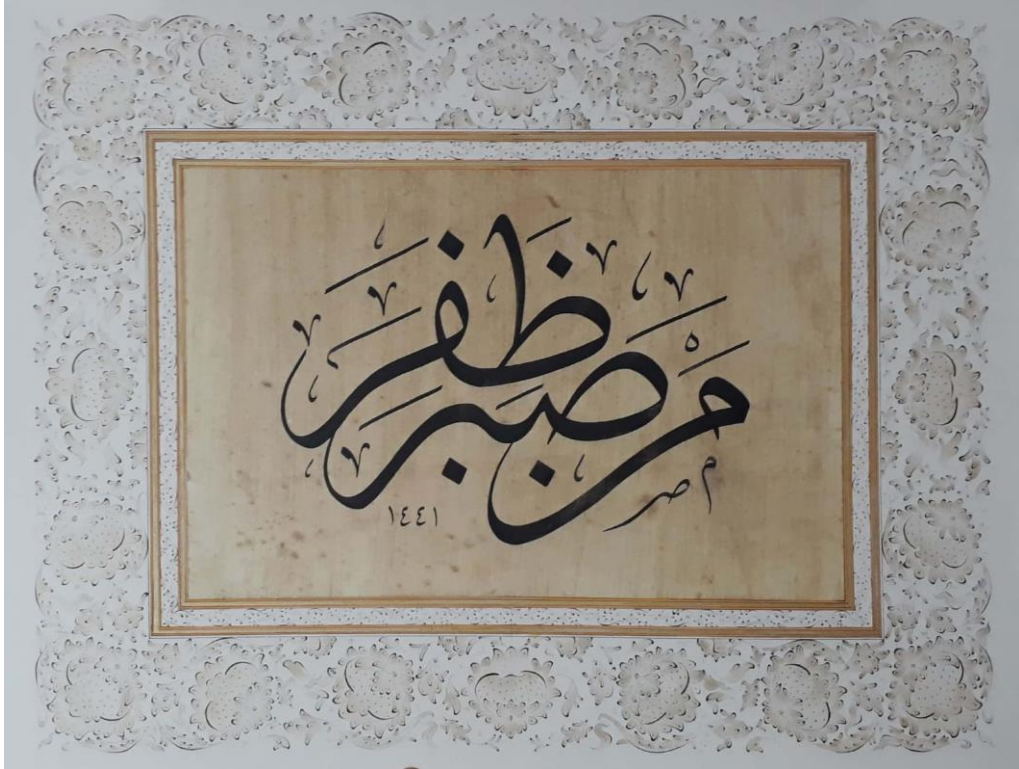 مَنْ صَبَرَ ظَفِرَ
١٤٤١